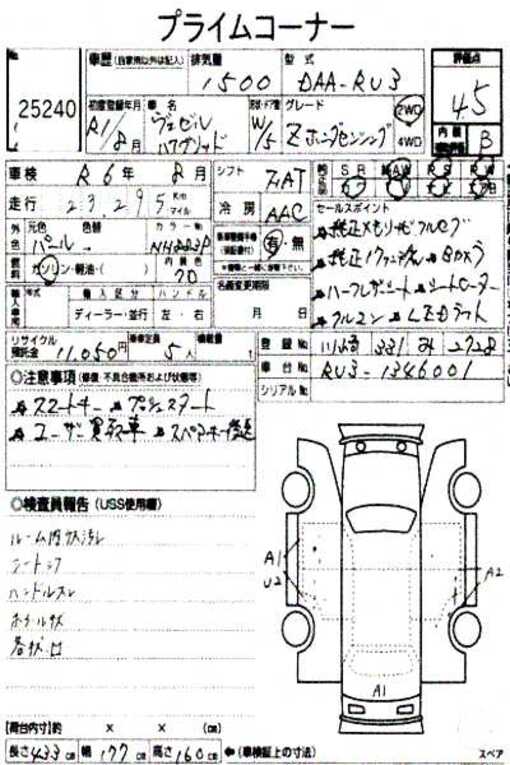 プライムコーナー
No. 25240
車歴 (自家用以外は記入)
排気量 1500
型式 DAA-RU3
評価点 4.5
初度登録年月 R1/8月
車名 ヴェゼル ハイブリッド
形状・ドア数 W/5
グレード Zホンダセンシング
2WD 4WD
内装 B
車検 R6年 8月
シフト FAT
走行 23,295 Km マイル
冷房 AAC
外色 元色 パール 色替 カラーNo NH883P
燃料 ガソリン・軽油・( ) 内装色 70
有・無
年式 輸入区分 ハンドル
ディーラー・並行 左・右
名義変更期限 月 日
セールスポイント
純正メモリーナビ フルセグ
Bカメラ
ハーフレザーシート シートヒーター
フルセグ LEDライト
リサイクル預託金 11,050円 乗車定員 5人 積載量 t
登録No 川崎 331 2728
車台No RU3-1346001
シリアルNo
◎注意事項 (修復・不具合箇所および状態等)
スマートキー プッシュスタート
ユーザー買取車 スペアキー後送
◎検査員報告 (USS使用欄)
ルーム内
シート
ハンドルスレ
ホイールキズ
A1
U2
A2
A1
【荷台内寸】約 × × (cm)
長さ 433 cm 幅 177 cm 高さ 160 cm ←(車検証上の寸法)
スペア